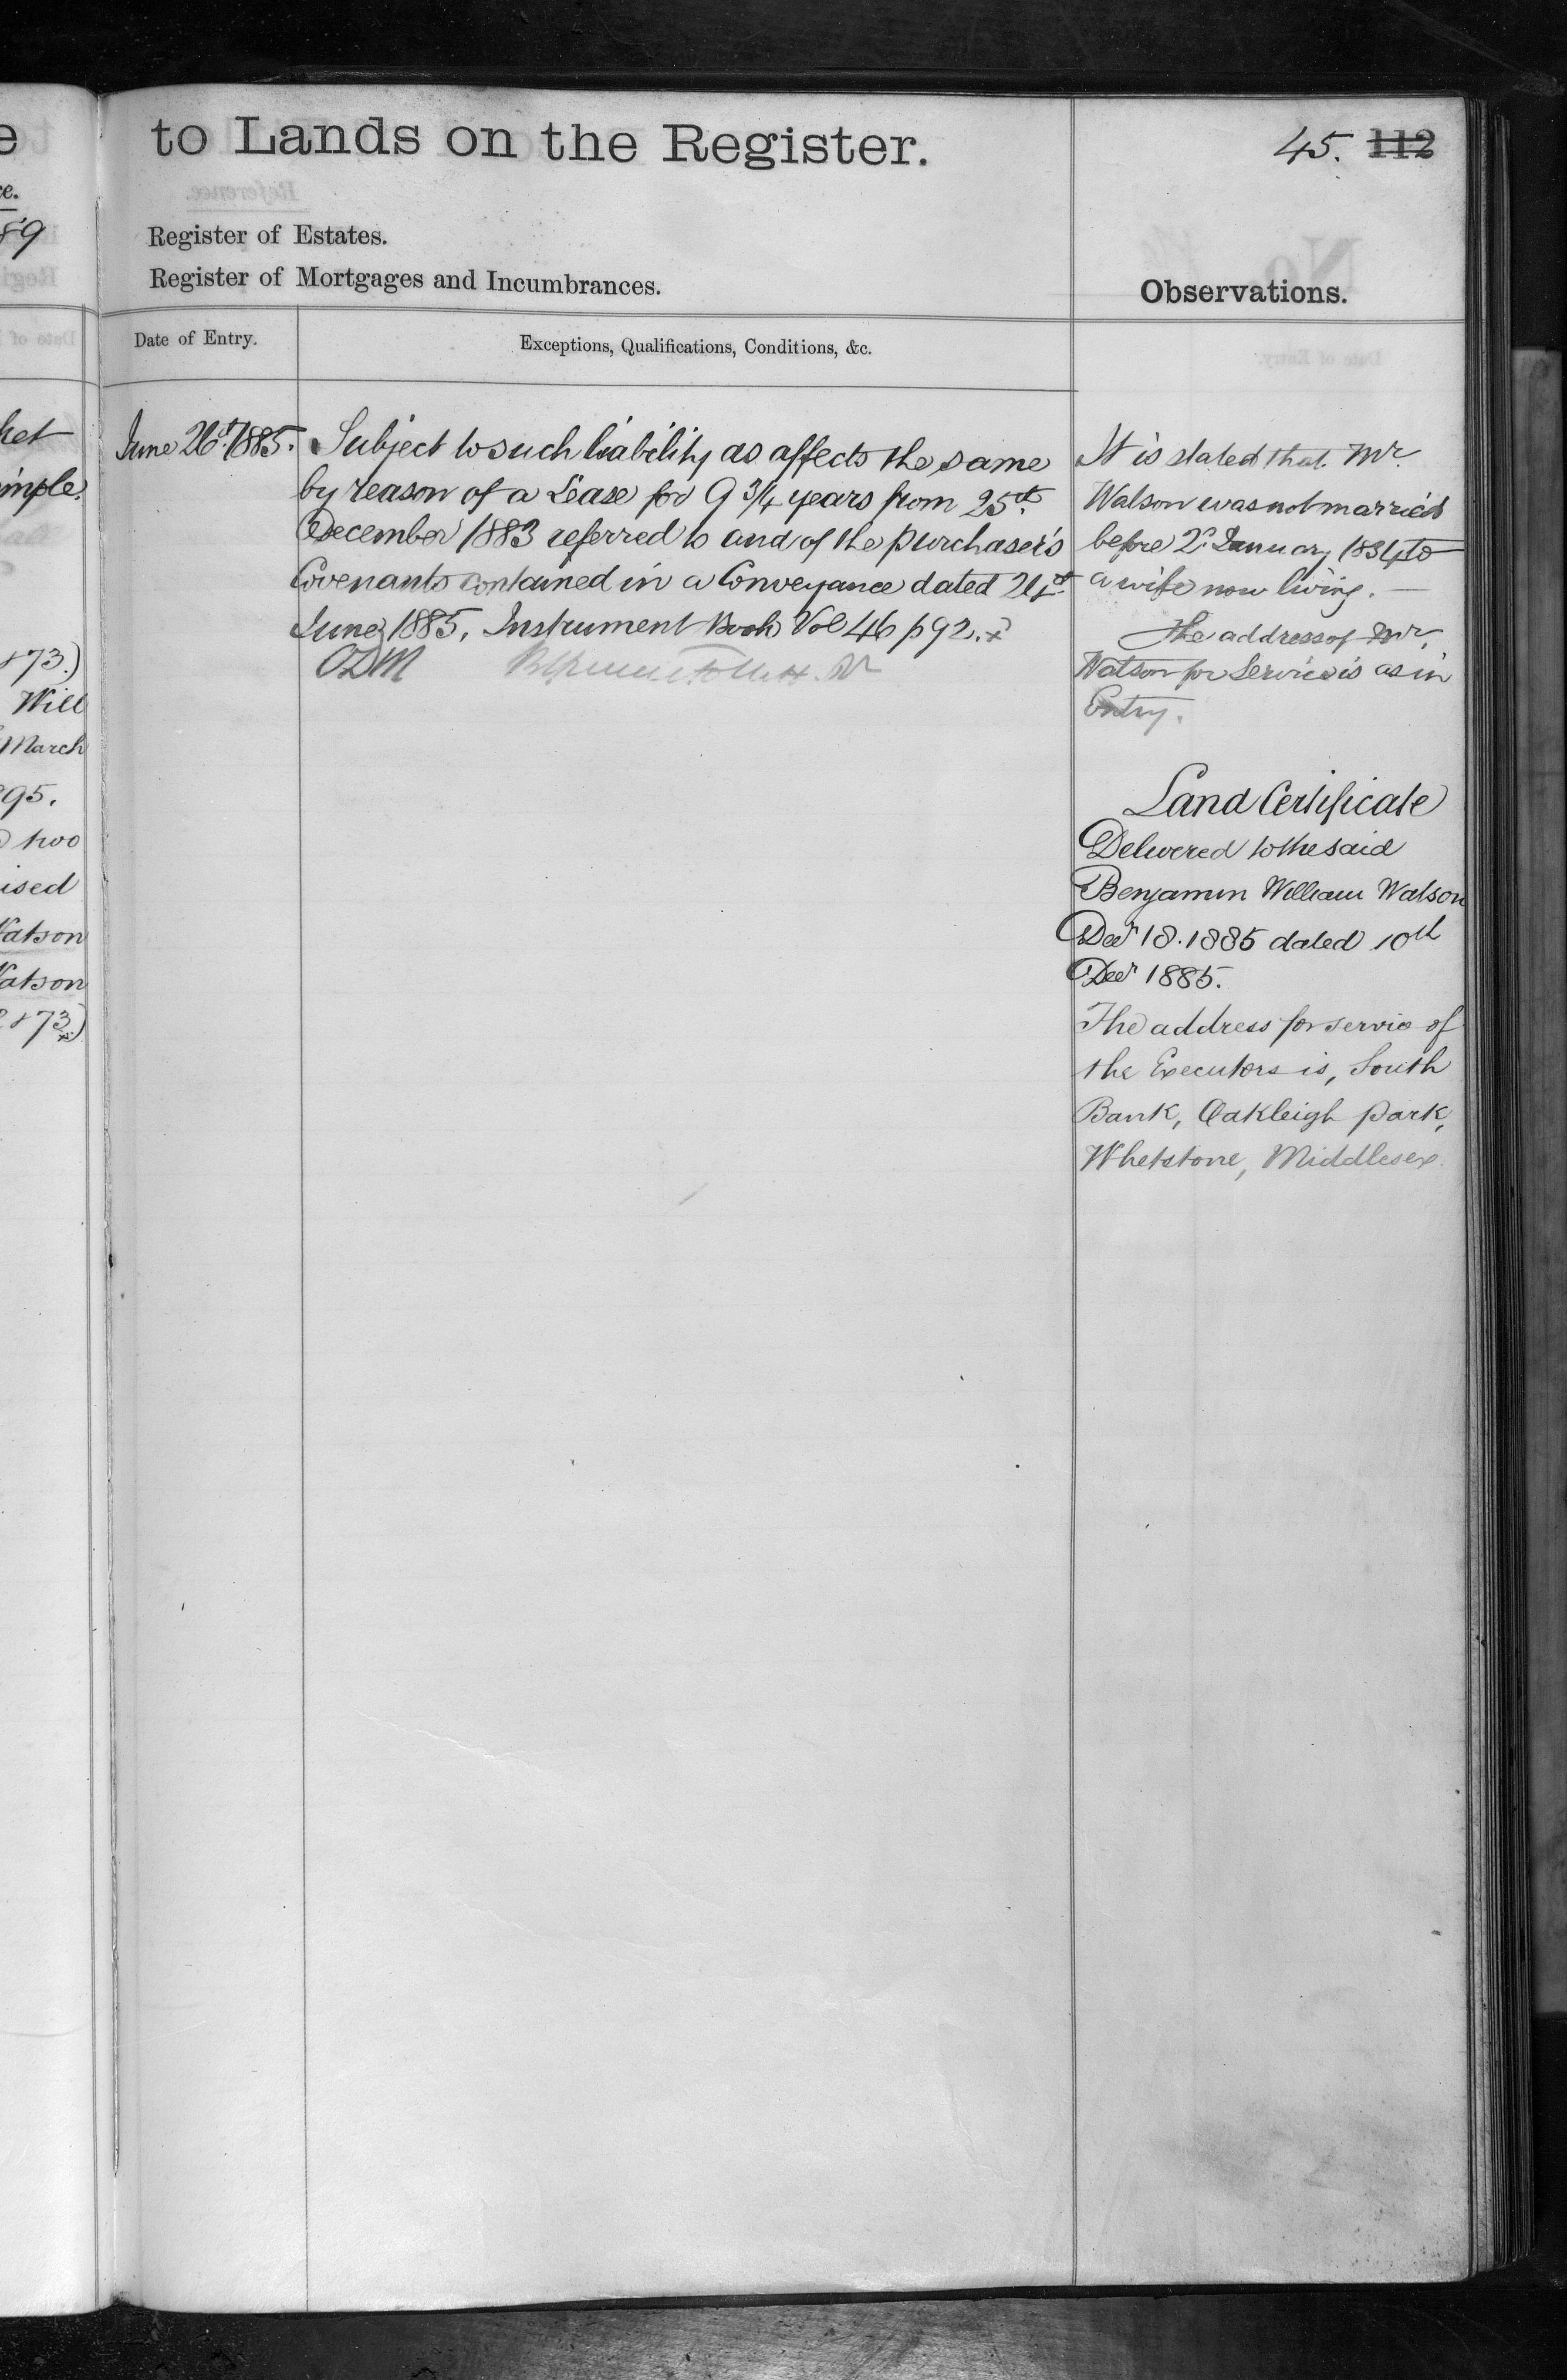 to Lands on the Register.
45. 112
Register of Estates.
Register of Mortgages and Incumbrances.
Observations.
Date of Entry.
Exceptions, Qualifications, Conditions, &c.
June 26th 1885.
Subject to such liability as affects the same
by reason of a Lease for 9 3/4 years from 25th
December 1883 referred to and of the purchaser's
Covenants contained in a Conveyance dated 24th
June 1885. Instrument Book Vol 46 p 92.
ODM
It is stated that Mr.
Watson was not married
before 2d January 1834 to
a wife now living.
The address of Mr.
Watson for Service is as in
Entry.
Land Certificate
Delivered to the said
Benjamin William Watson
Decr 18. 1885 dated 10th
Decr 1885.
The address for service of
the Executors is, South
Bank, Oakleigh Park,
Whetstone, Middlesex.
e
ce.
89
ket
imple.
873.)
Will
March
895.
two
ised
Watson
Watson
873)